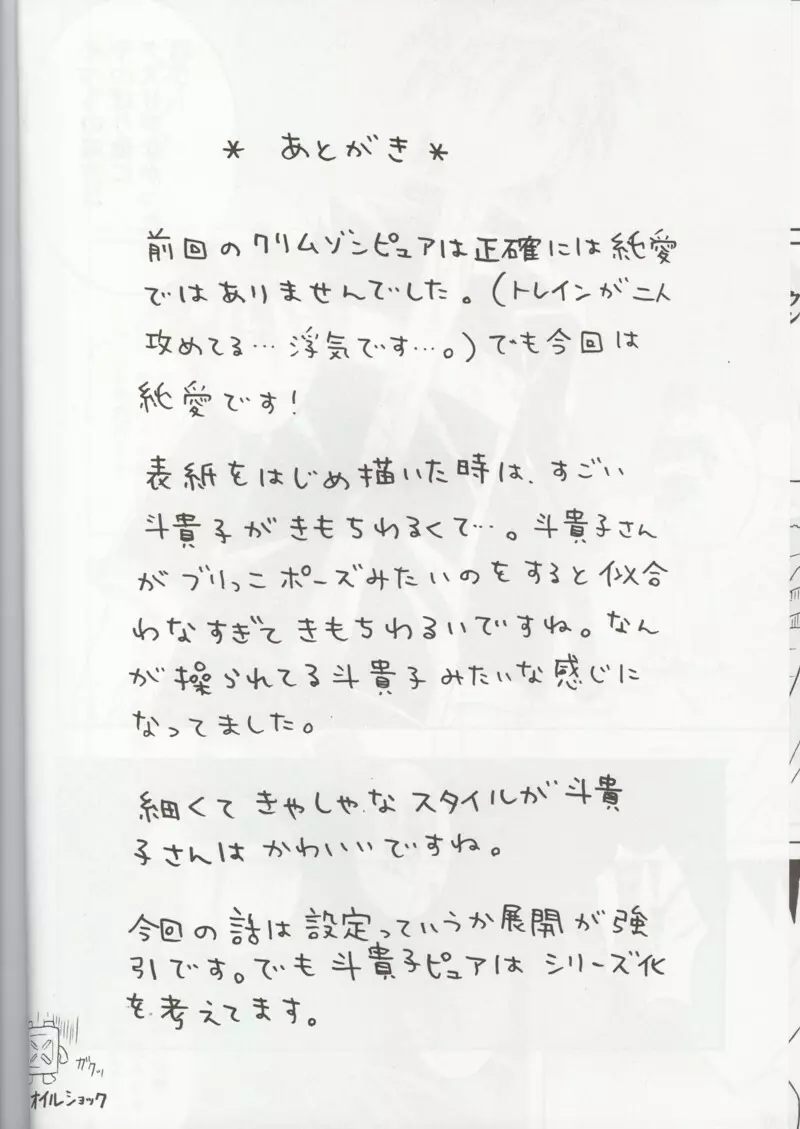 * あとがき *
前回のクリムゾンピュアは正確には純愛
ではありませんでした。（トレインが二人
攻めてる…浮気です…。）でも今回は
純愛です！
表紙をはじめ描いた時は、すごい
斗貴子がきもちわるくて…。斗貴子さん
がブリっこポーズみたいのをすると似合
わなすぎてきもちわるいですね。なん
が操られてる斗貴子みたいな感じに
なってました。
細くてきゃしゃなスタイルが斗貴
子さんはかわいいですね。
今回の話は設定っていうか展開が強
引です。でも斗貴子ピュアはシリーズ化
を考えてます。
ガクッ
オイルショック